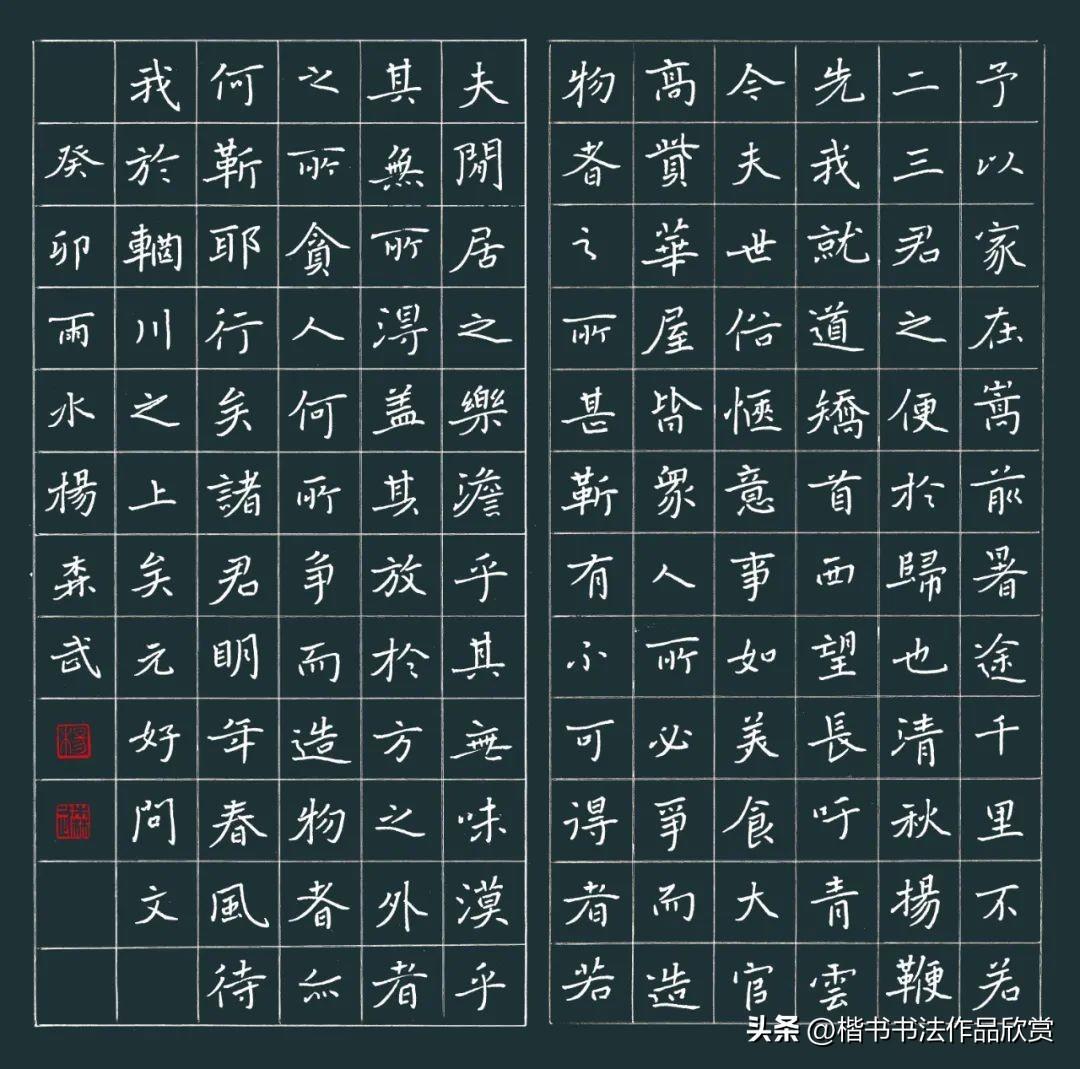 予以家在嵩前暑途千里不若
二三君之便於歸也清秋揚鞭
先我就道矯首西望長吁青雲
今夫世俗愜意事如美食大官
高貲華屋皆衆人所必爭而造
物者之所甚靳有不可得者若
夫閒居之樂澹乎其無味漠乎
其無所得盖其放於方之外者
之所貪人何所争而造物者亦
何靳耶行矣諸君明年春風待
我於輞川之上矣元好問文
癸卯雨水楊森武
头条 @楷书书法作品欣赏